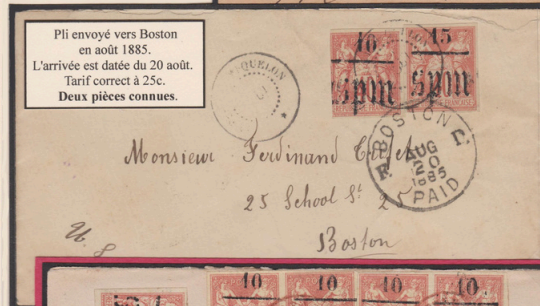 Pli envoyé vers Boston
en août 1885.
L'arrivée est datée du 20 août.
Tarif correct à 25c.
Deux pièces connues.
QUELON
10
15
spm
spm
BOSTON
AUG
20
1885
PAID
Monsieur Ferdinand
25 School St
Boston
10 10 10 10